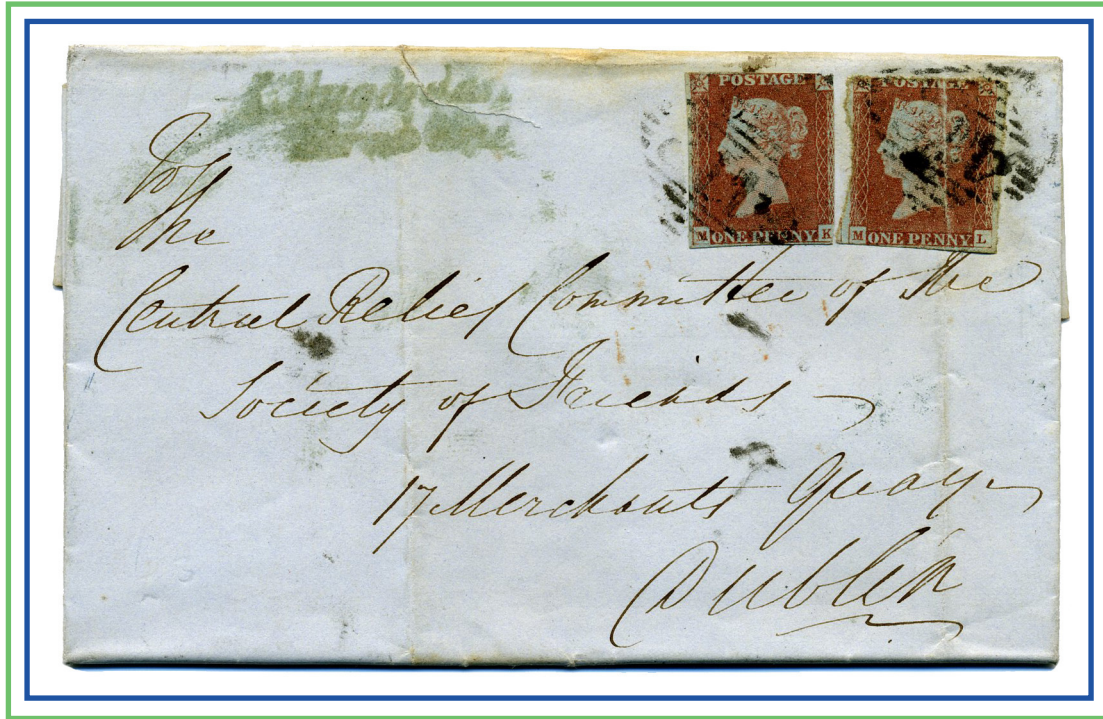 POSTAGE POSTAGE
M ONE PENNY K M ONE PENNY L
To
The
Central Relief Committee of the
Society of Friends
17 Merchants Quay
Dublin